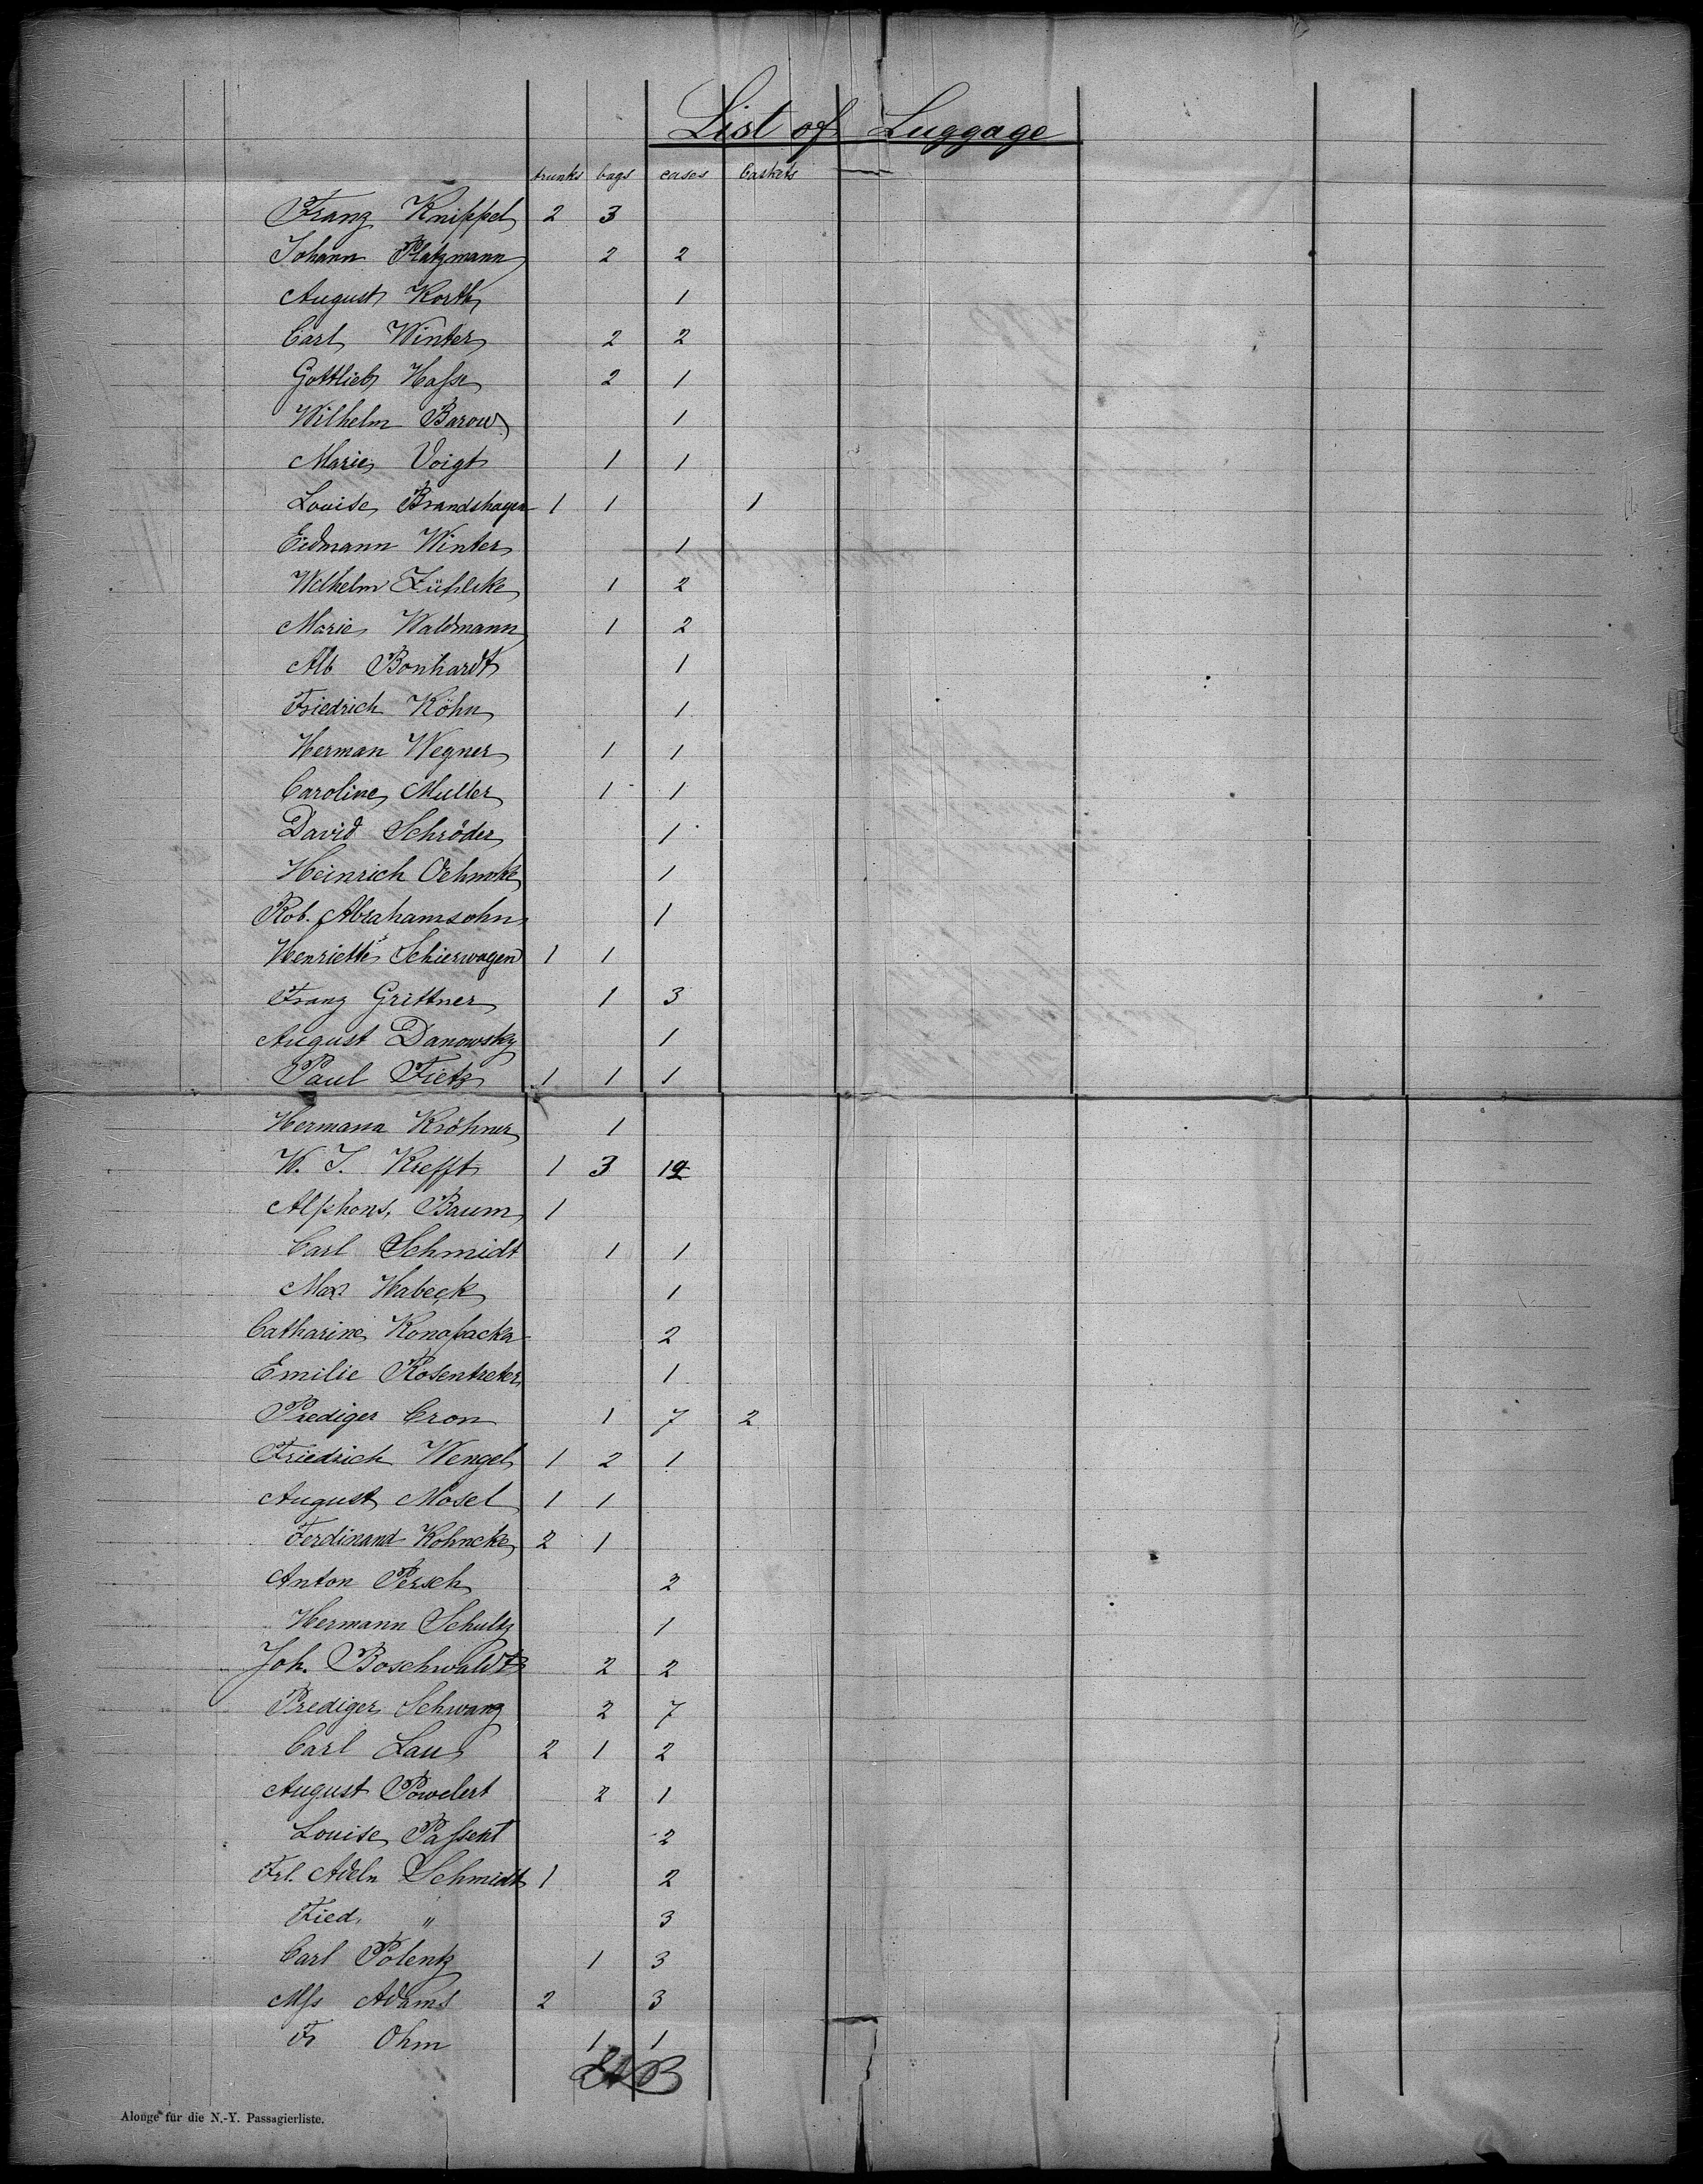 List of Luggage
trunks bags cases baskets
Franz Knippel 2 3
Johann Platzmann 2 2
August Korth 1
Carl Winter 2 2
Gottlieb Hasse 2 1
Wilhelm Barow 1
Marie Voigt 1 1
Louise Brandshagen 1 1 1
Erdmann Winter 1
Wilhelm Zühlcke 1 2
Marie Waldmann 1 2
Alb Bonhardt 1
Friedrich Köhn 1
Herman Wegner 1 1
Caroline Muller 1 1
David Schröder 1
Heinrich Oehmke 1
Rob. Abrahamsohn 1
Henriette Schierwagen 1 1
Franz Grittner 1 3
August Danowsky 1
Paul Fietz 1 1 1
Hermann Kröhner 1
W. J. Krefft 1 3
Alphons Baum 1
Carl Schmidt 1 1
Max Habeck 1
Catharine Konopacka 2
Emilie Rosentreter 1
Prediger Cron 1 7 2
Friedrich Wengel 1 2 1
August Mosel 1 1
Ferdinand Kohncke 2 1
Anton Persch 2
Hermann Schultz 1
Joh. Boschwaldt 2 2
Prediger Schwanz 2 7
Carl Lau 2 1 2
August Powelert 2 1
Louise Passent 2
Frl. Adeln Schmidt 1 2
Fied. " 3
Carl Polentz 1 3
Mss Adams 2 3
Fr Ohm 1 1
Alonge für die N.-Y. Passagierliste.